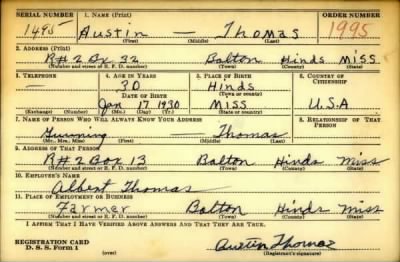 SERIAL NUMBER 1. NAME (Print) ORDER NUMBER
1495 Austin — Thomas 1995
(First) (Middle) (Last)
2. ADDRESS (Print)
R#2 Bx 32 Bolton Hinds Miss
(Number and street or R. F. D. number) (Town) (County) (State)
3. TELEPHONE 4. AGE IN YEARS 5. PLACE OF BIRTH 6. COUNTRY OF CITIZENSHIP
— 30 Hinds
DATE OF BIRTH (Town or county)
Jan 17 1930 Miss U.S.A
(Exchange) (Number) (Mo.) (Day) (Yr.) (State or country)
7. NAME OF PERSON WHO WILL ALWAYS KNOW YOUR ADDRESS 8. RELATIONSHIP OF THAT PERSON
— Thomas
(Mr., Mrs., Miss) (First) (Middle) (Last)
9. ADDRESS OF THAT PERSON
R#2 Box 13 Bolton Hinds Miss
(Number and street or R. F. D. number) (Town) (County) (State)
10. EMPLOYER'S NAME
Albert Thomas
11. PLACE OF EMPLOYMENT OR BUSINESS
Farmer Bolton Hinds Miss
(Number and street or R. F. D. number) (Town) (County) (State)
I AFFIRM THAT I HAVE VERIFIED ABOVE ANSWERS AND THAT THEY ARE TRUE.
REGISTRATION CARD
D. S. S. Form 1 (over) Austin Thomas
(Registrant's signature)